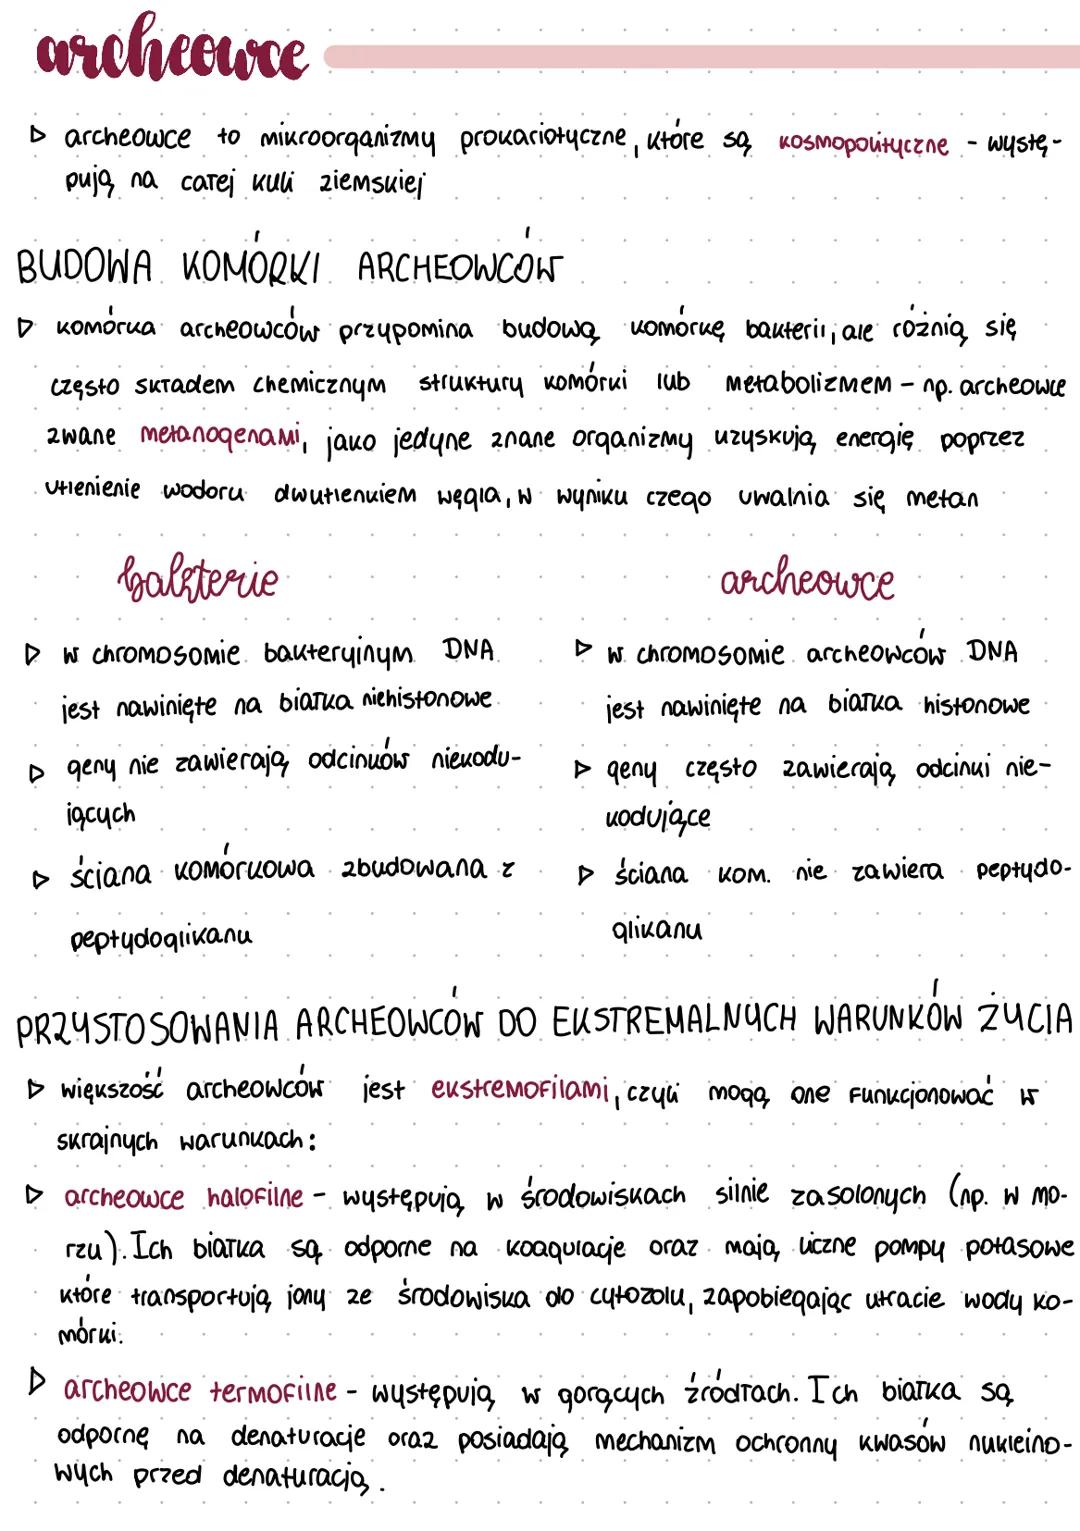 archeowce
▷ archeowce to mikroorganizmy prokariotyczne, które są kosmopolityczne - wystę-
pują na całej kuli ziemskiej
BUDOWA KOMÓRKI ARCHEOWCÓW
▷ komórka archeowców przypomina budową komórkę bakterii, ale różnią się
często składem chemicznym struktury komórki lub metabolizmem – np. archeowce
zwane metanogenami, jako jedyne znane organizmy uzyskują energię poprzez
utlenienie wodoru dwutlenkiem węgla, w wyniku czego uwalnia się metan
bakterie
▷ w chromosomie bakteryjnym DNA
jest nawinięte na białka niehistonowe
▷ geny nie zawierają odcinków niekodu-
jących
▷ ściana komórkowa zbudowana z
peptydoglikanu
archeowce
▷ w chromosomie archeowców DNA
jest nawinięte na białka histonowe
▷ geny często zawierają odcinki nie-
kodujące
▷ ściana kom. nie zawiera peptydo-
glikanu
PRZYSTOSOWANIA ARCHEOWCÓW DO EKSTREMALNYCH WARUNKÓW ŻYCIA
▷ większość archeowców jest ekstremofilami, czyli mogą one funkcjonować w
skrajnych warunkach:
▷ archeowce halofilne - występują w środowiskach silnie zasolonych (np. w mo-
rzu). Ich białka są odporne na koagulacje oraz mają liczne pompy potasowe
które transportują jony ze środowiska do cytozolu, zapobiegając utracie wody ko-
mórki.
▷ archeowce termofilne - występują w gorących źródłach. Ich białka są
odpornę na denaturacje oraz posiadają mechanizm ochronny kwasów nukleino-
wych przed denaturacją.